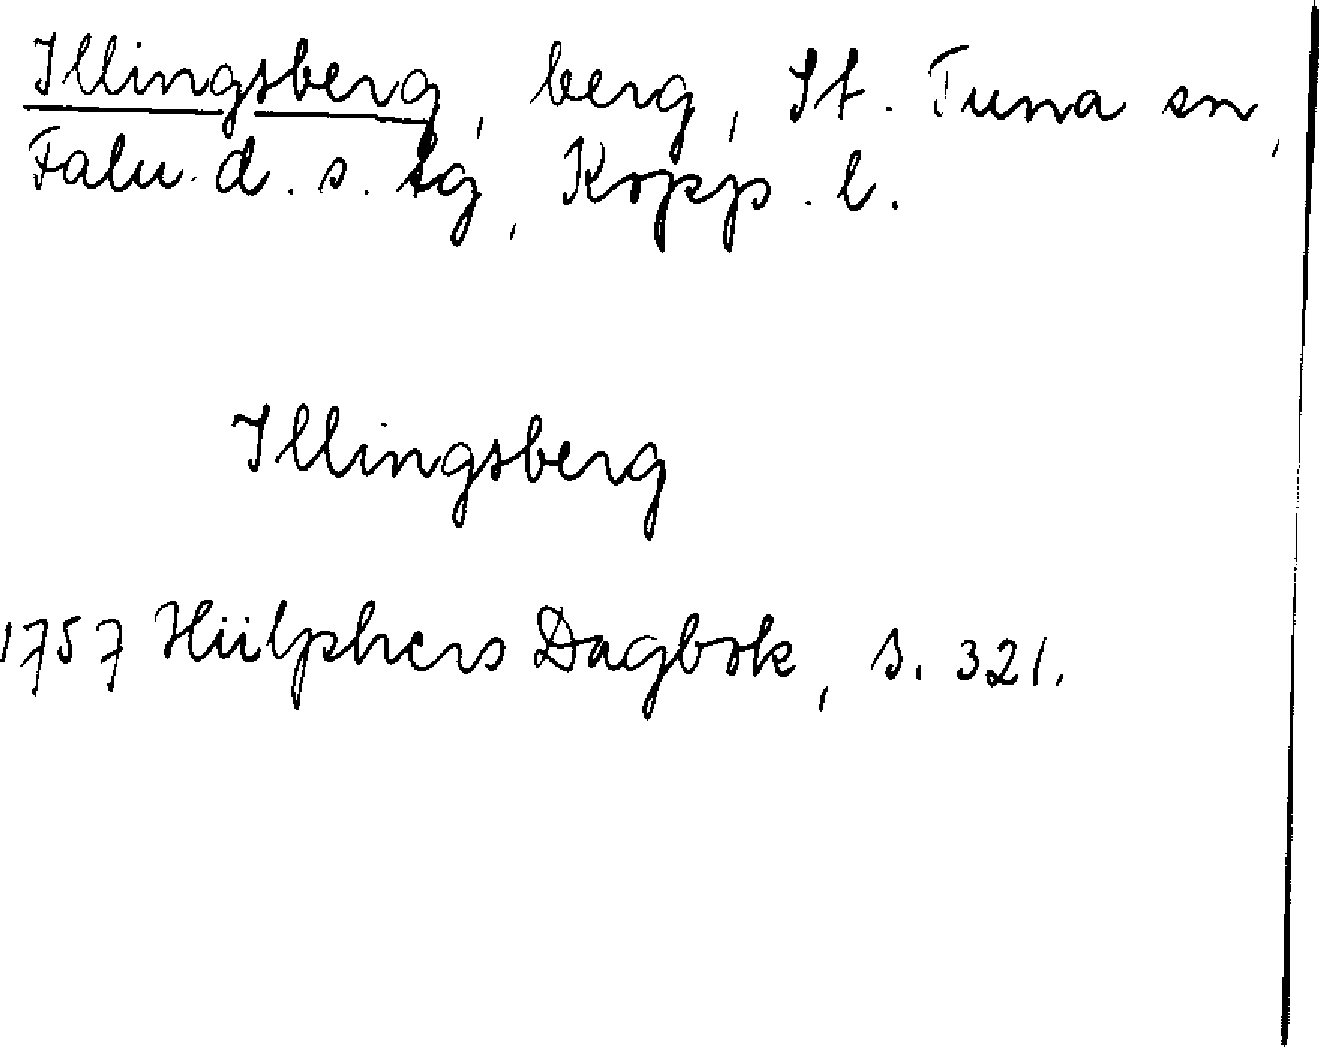 Illingsberg, berg, St. Tuna sn,
Falu d. s. tg, Kopp. l.
Illingsberg
1757 Hülphers Dagbok, s. 321.